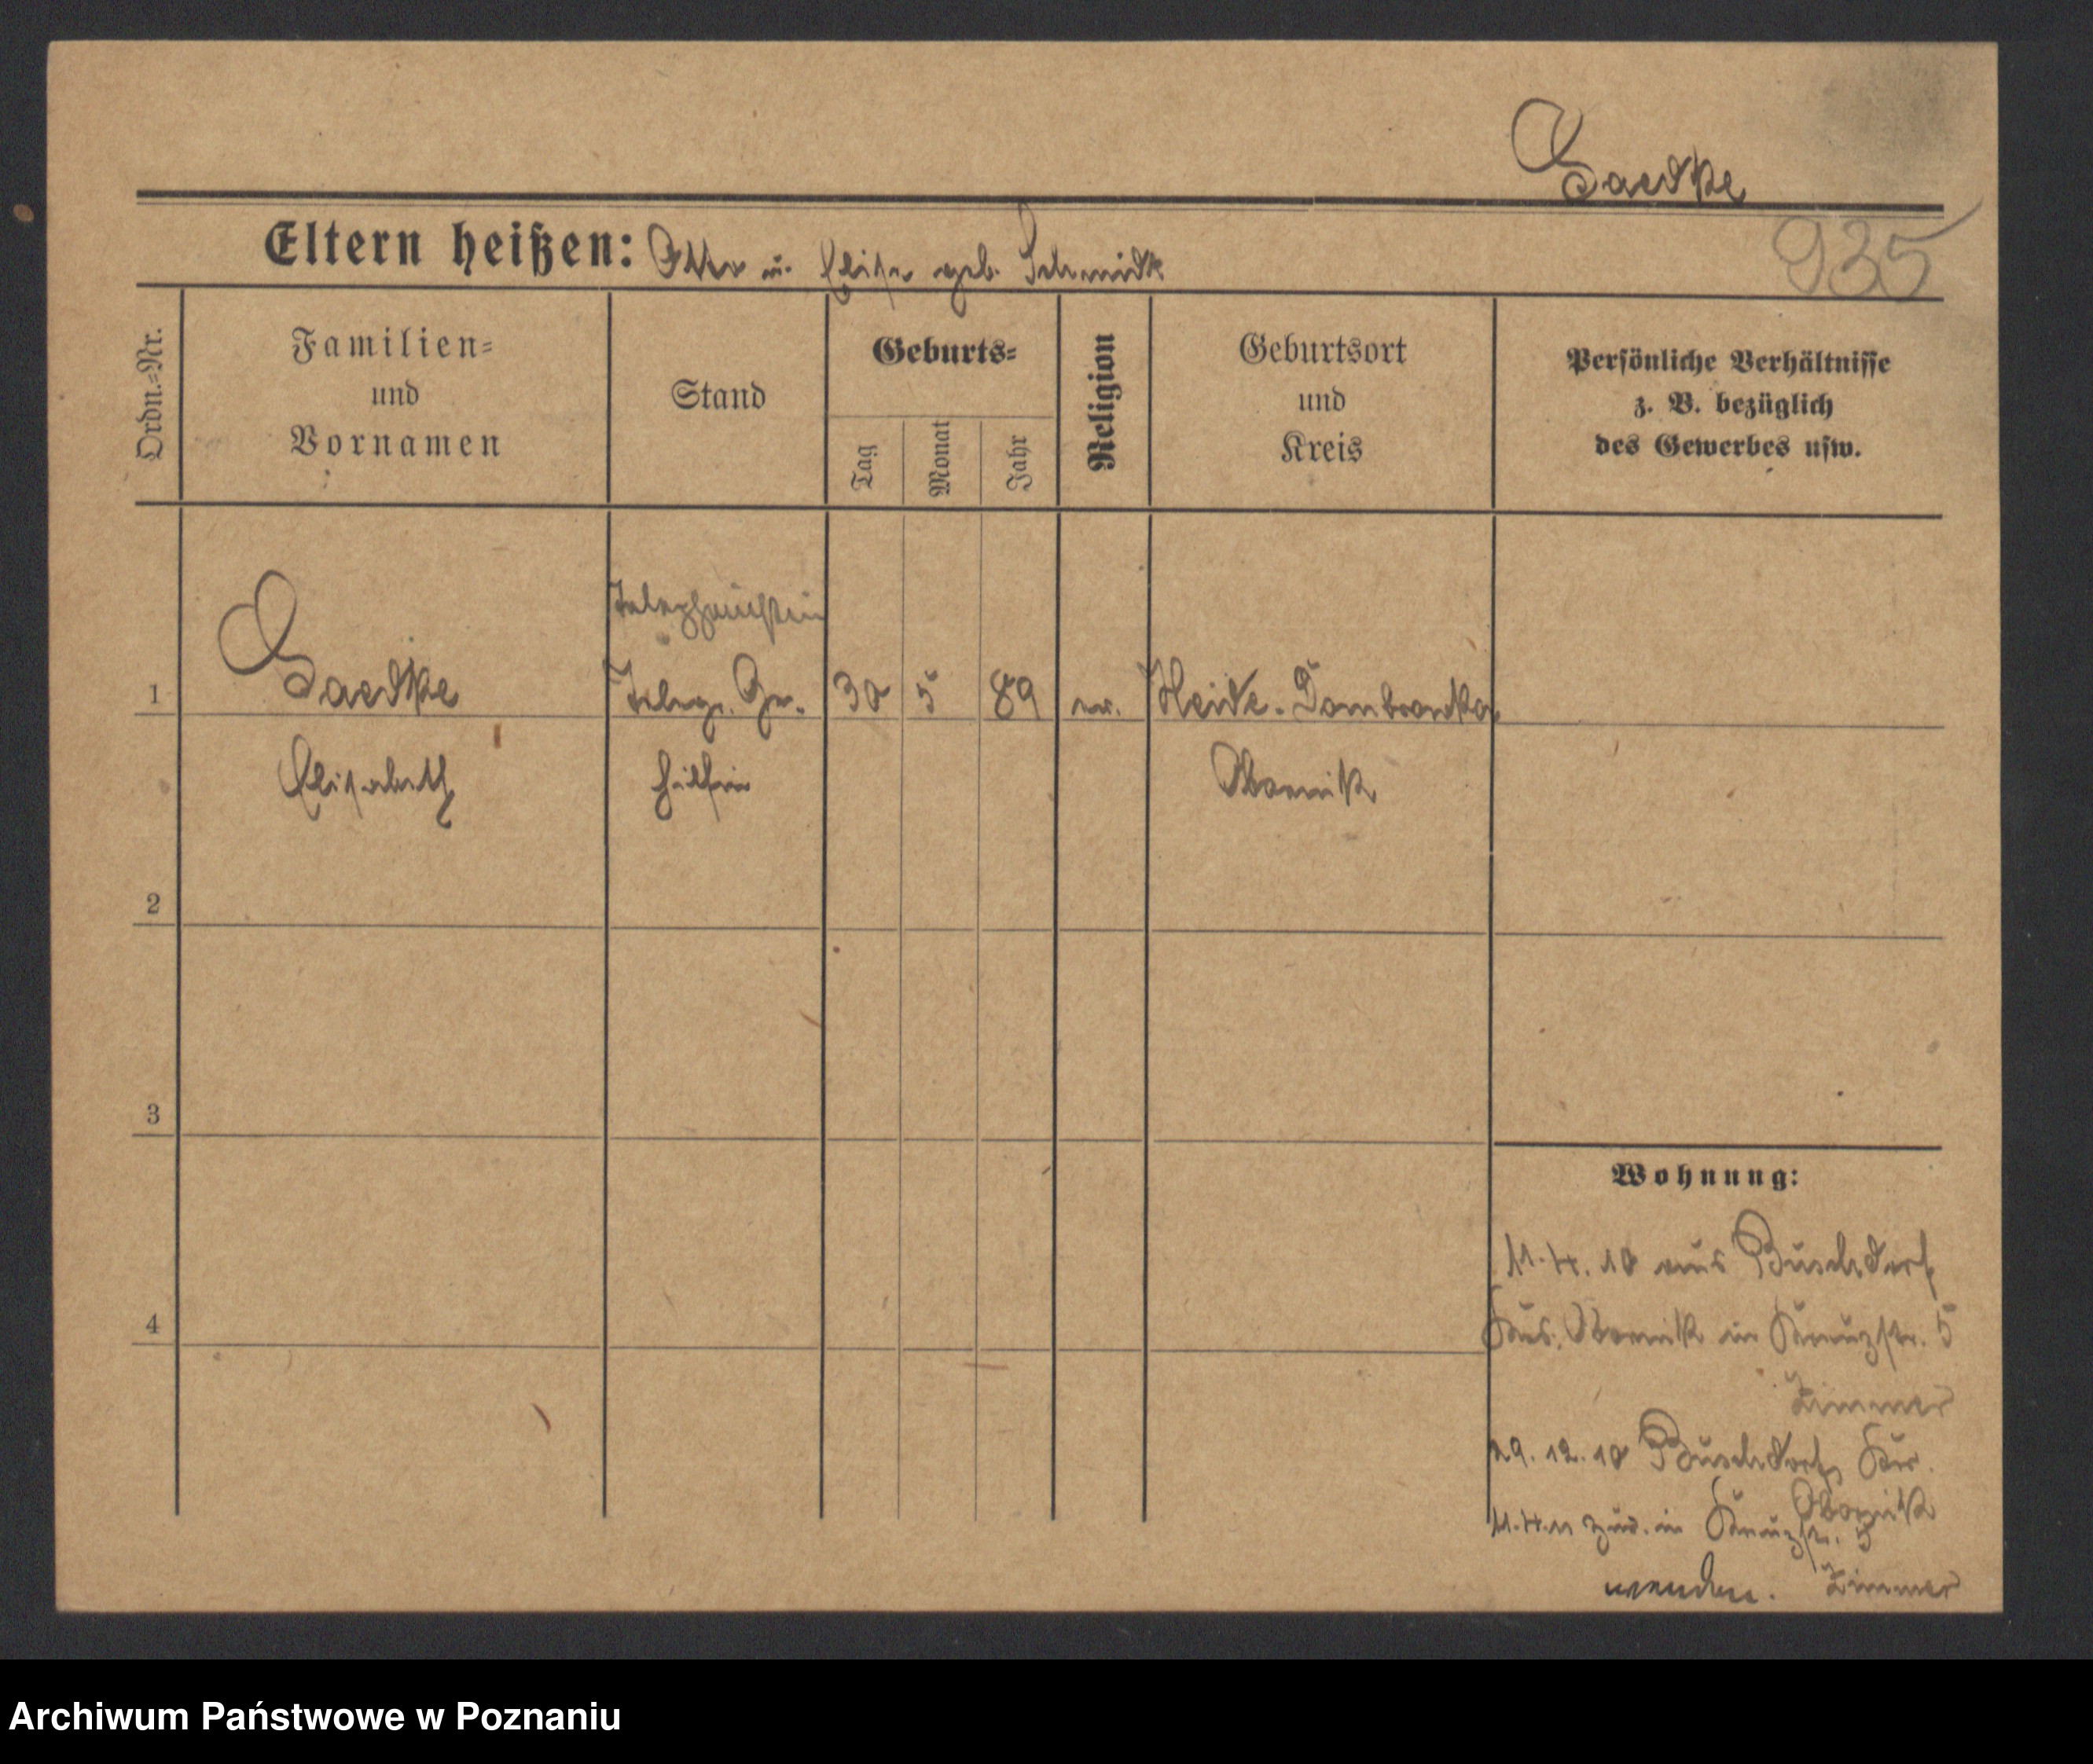 Gaedke
935
Eltern heißen: Otto u. Elise geb. Schmidt
Ordn.-Nr.
Familien-
und
Vornamen
Stand
Geburts-
Tag
Monat
Jahr
Religion
Geburtsort
und
Kreis
Persönliche Verhältnisse
z. B. bezüglich
des Gewerbes usw.
Telephonistin
1 Gaedke Telegr. Ge. 30 5 89 ev. Heide-Dombrowka
Elisabeth hülfin Obornik
2
3
Wohnung:
11.4.10 aus Buschdorf
4 Krs. Obornik in Kreuzstr. 5
Zimmer
29.12.10 Buschdorf, Kr.
Obornik
11.4.11 zur. in Kreuzstr. 5
wenden. Zimmer
Archiwum Państwowe w Poznaniu